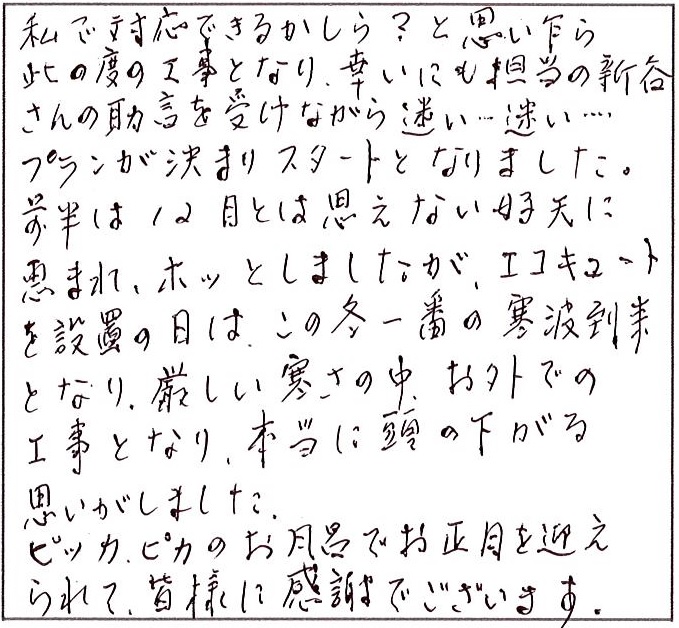 私で対応できるかしら?と思い乍ら
此の度の工事となり、幸いにも担当の新谷
さんの助言を受けながら迷い…迷い…
プランが決まりスタートとなりました。
前半は12月とは思えない好天に
恵まれ、ホッとしましたが、エコキュート
を設置の日は、この冬一番の寒波到来
となり、厳しい寒さの中、お外での
工事となり、本当に頭の下がる
思いがしました。
ピッカピカのお風呂でお正月を迎え
られて、皆様に感謝でございます。